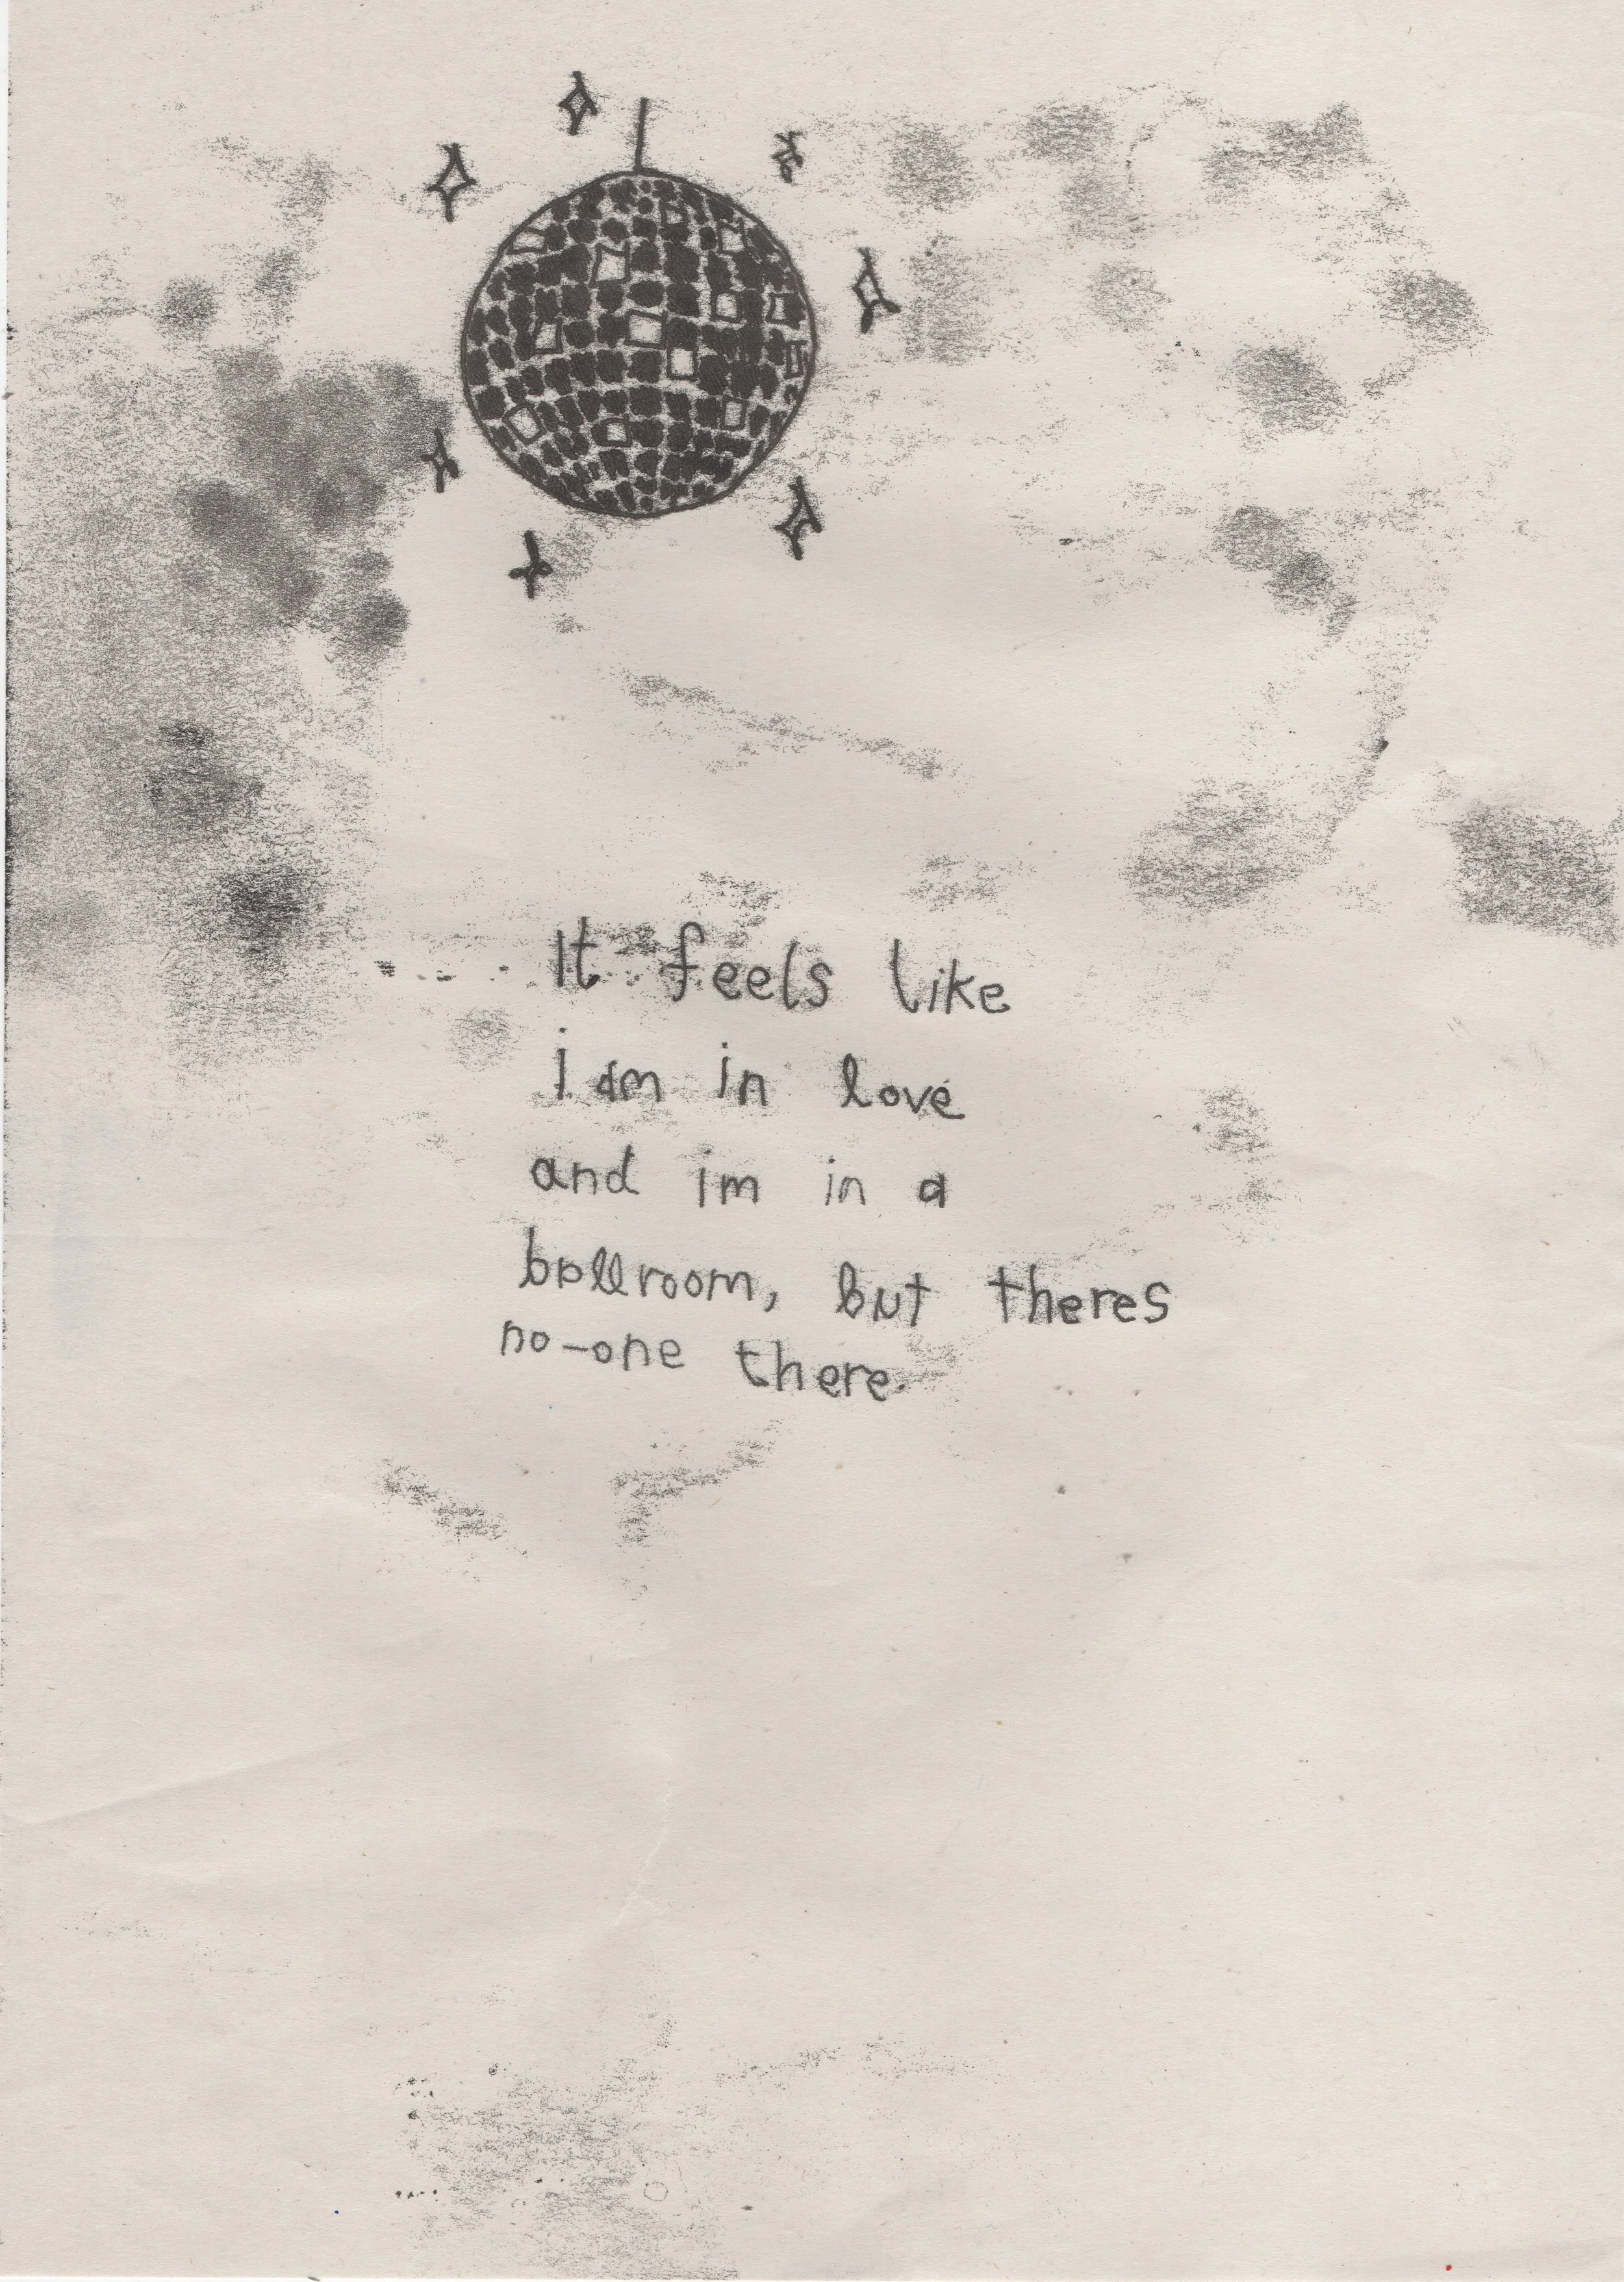 It feels like
i am in love
and im in a
ballroom, but theres
no-one there.